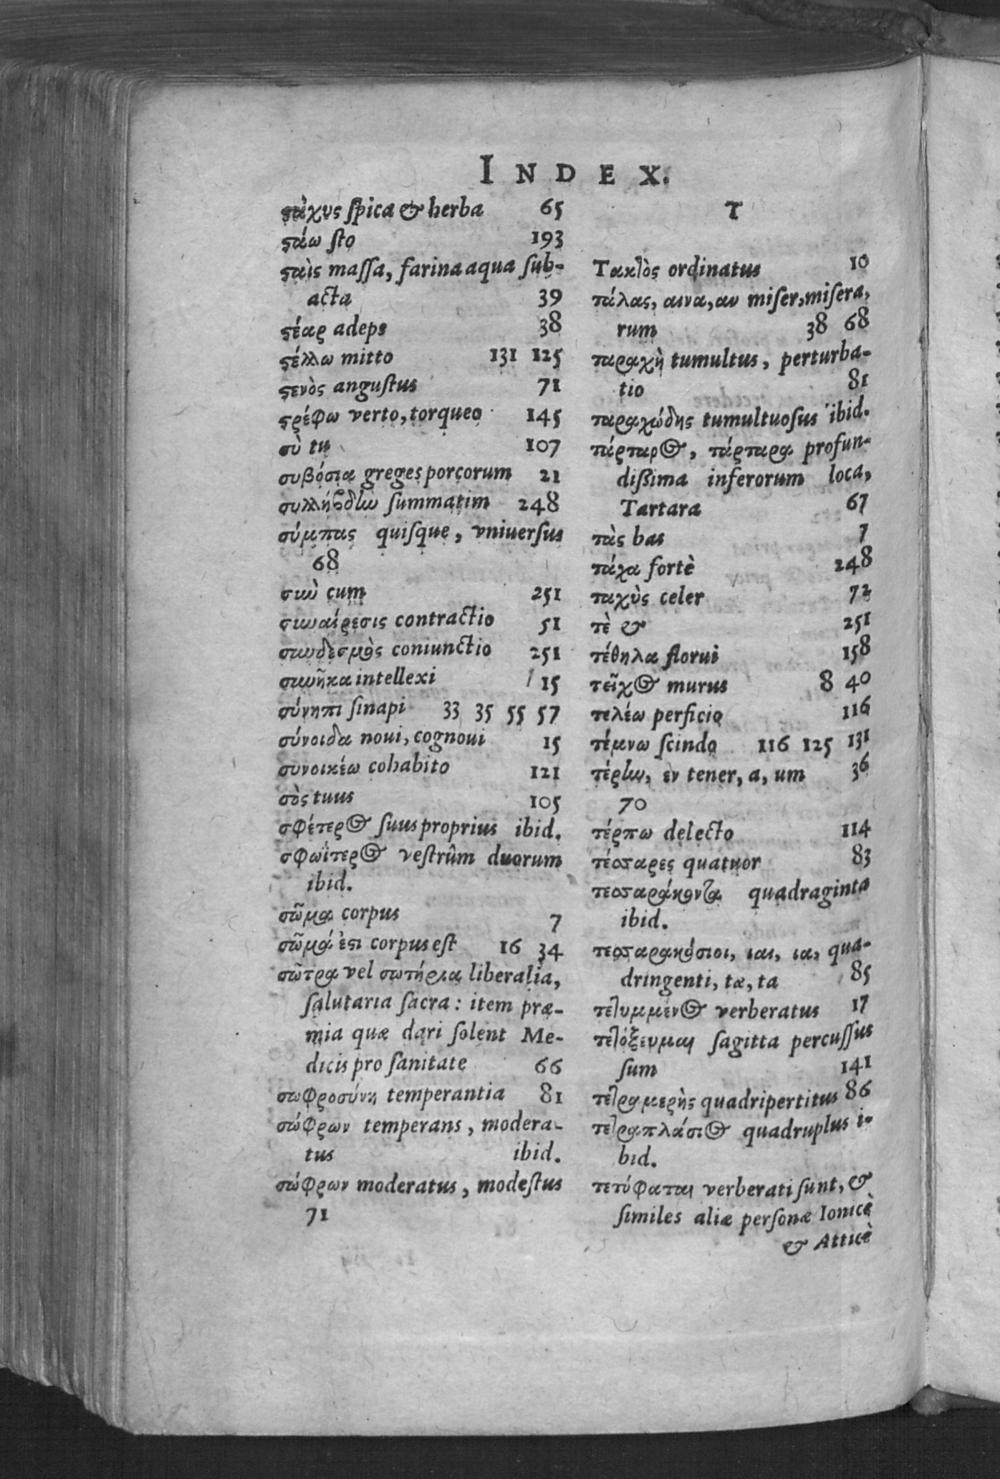 INDEX.
ϛάχυς ſpica & herba 65
ϛάω ſto 193
ϛαὶς maſſa, farina aqua ſub-
acta 39
ϛέαρ adeps 38
ϛέλλω mitto 131 125
ϛενὸς anguſtus 71
ϛρέφω verto, torqueo 145
σὺ tu 107
συβόσια greges porcorum 21
συλλήβδην ſummatim 248
σύμπας quiſque, vniuerſus
68
σιωὺ cum 251
σιωαίρεσις contractio 51
σιωδεσμὸς coniunctio 251
σιωῆκα intellexi 15
σύνηπι ſinapi 33 35 55 57
σύνοιδα noui, cognoui 15
συνοικέω cohabito 121
σὸς tuus 105
σφέτερος ſuus proprius ibid.
σφωΐτερος veſtrûm duorum
ibid.
σῶμα corpus 7
σῶμά ἐϛι corpus eſt 16 34
σῶτρα vel σωτήρια liberalia,
ſalutaria ſacra: item præ-
mia quæ dari ſolent Me-
dicis pro ſanitate 66
σωφροσύνη temperantia 81
σώφρων temperans, modera-
tus ibid.
σώφρων moderatus, modeſtus
71
T
Τακτὸς ordinatus 10
τάλας, αινα, αν miſer, miſera,
rum 38 68
ταραχὴ tumultus, perturba-
tio 81
ταραχώδης tumultuoſus ibid.
τάρταρος, τάρταρα profun-
diſsima inferorum loca,
Tartara 67
τὰς has 7
τάχα fortè 248
ταχὺς celer 72
τὲ & 251
τέθηλα florui 158
τεῖχος murus 8 40
τελέω perficio 116
τέμνω ſcindo 116 125 131
τέρην, εν tener, a, um 36
70
τέρπω delecto 114
τέσσαρες quatuor 83
τεσσαράκοντα quadraginta
ibid.
τεσσαρακόσιοι, ιαι, ια, qua-
dringenti, tæ, ta 85
τετυμμένος verberatus 17
τετόξευμαι ſagitta percuſſus
ſum 141
τετραμερὴς quadripertitus 86
τετραπλάσιος quadruplus i-
bid.
τετύφαται verberati ſunt, &
ſimiles aliæ perſonæ Ionicè
& Atticè